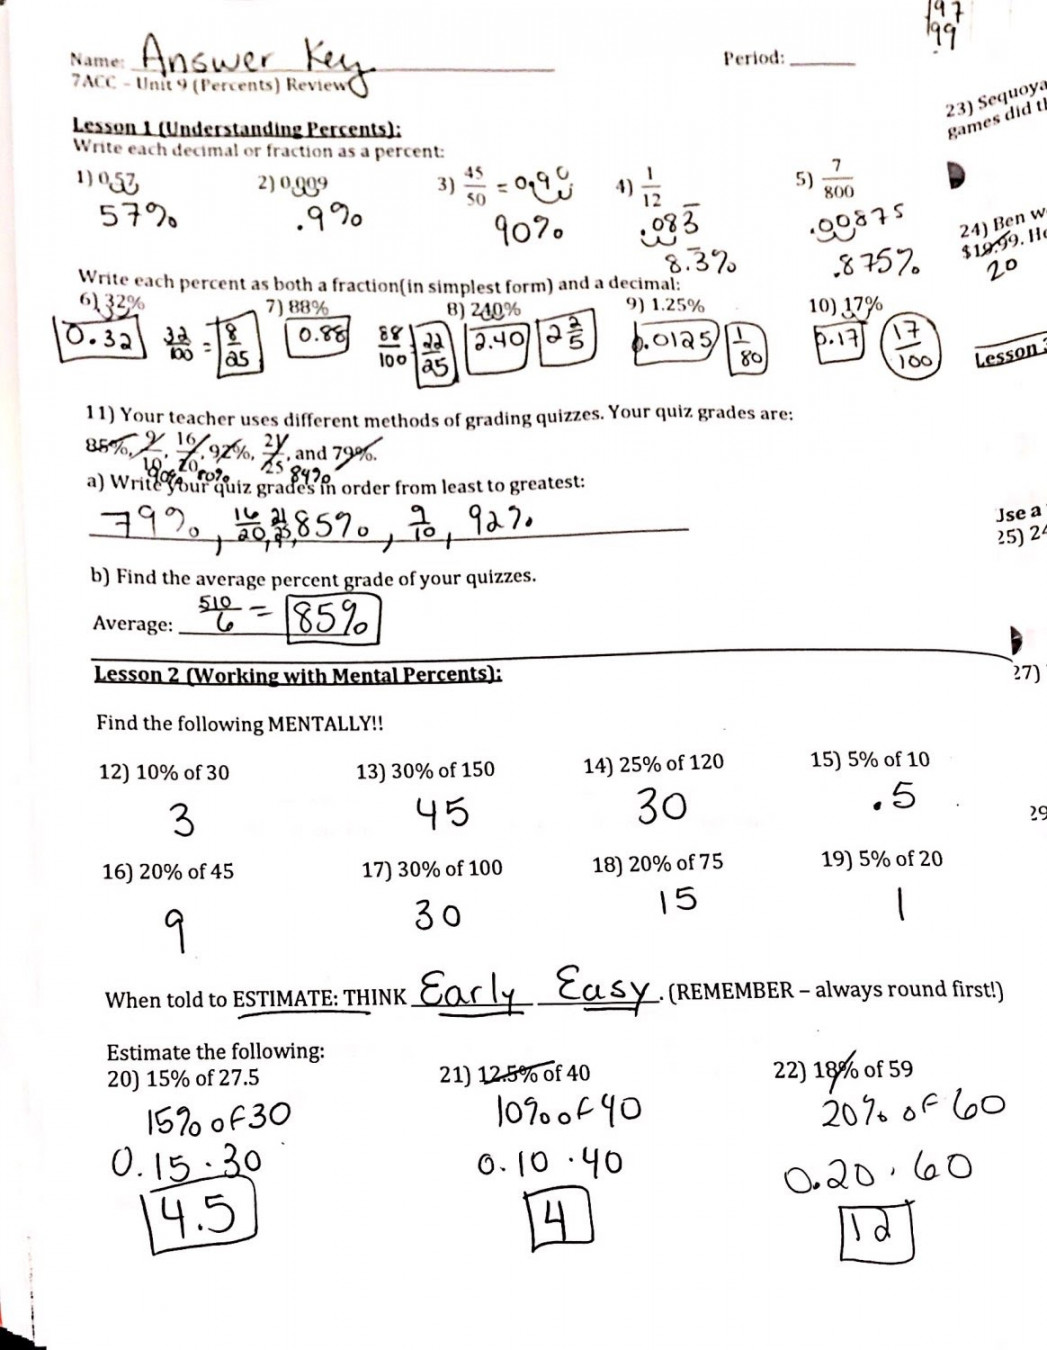 197
199
Name: Answer Key Period:
7ACC - Unit 9 (Percents) Review
23) Sequoya
games did th
Lesson 1 (Understanding Percents):
Write each decimal or fraction as a percent:
1) 0.57 2) 0.009 3) 45/50 = 0.90 4) 1/12 5) 7/800
57% .9% 90% .083̅ .00875
8.3% .875%
24) Ben w
$19.99. He
20
Write each percent as both a fraction(in simplest form) and a decimal:
6) 32% 7) 88% 8) 240% 9) 1.25% 10) 17%
0.32 32/100 = 8/25 0.88 88/100 22/25 2.40 2 2/5 0.0125 1/80 0.17 17/100
Lesson 3
11) Your teacher uses different methods of grading quizzes. Your quiz grades are:
85%, 9/10, 16/20, 92%, 21/25, and 79%.
90% 80% 84%
a) Write your quiz grades in order from least to greatest:
79%, 16/20, 21/25, 85%, 9/10, 92%
Use a
25) 24
b) Find the average percent grade of your quizzes.
Average: 510/6 = 85%
Lesson 2 (Working with Mental Percents):
27)
Find the following MENTALLY!!
12) 10% of 30 13) 30% of 150 14) 25% of 120 15) 5% of 10
3 45 30 .5
29
16) 20% of 45 17) 30% of 100 18) 20% of 75 19) 5% of 20
9 30 15 1
When told to ESTIMATE: THINK Early Easy. (REMEMBER – always round first!)
Estimate the following:
20) 15% of 27.5 21) 12.5% of 40 22) 18% of 59
15% of 30 10% of 40 20% of 60
0.15 · 30 0.10 · 40 0.20 · 60
4.5 4 12